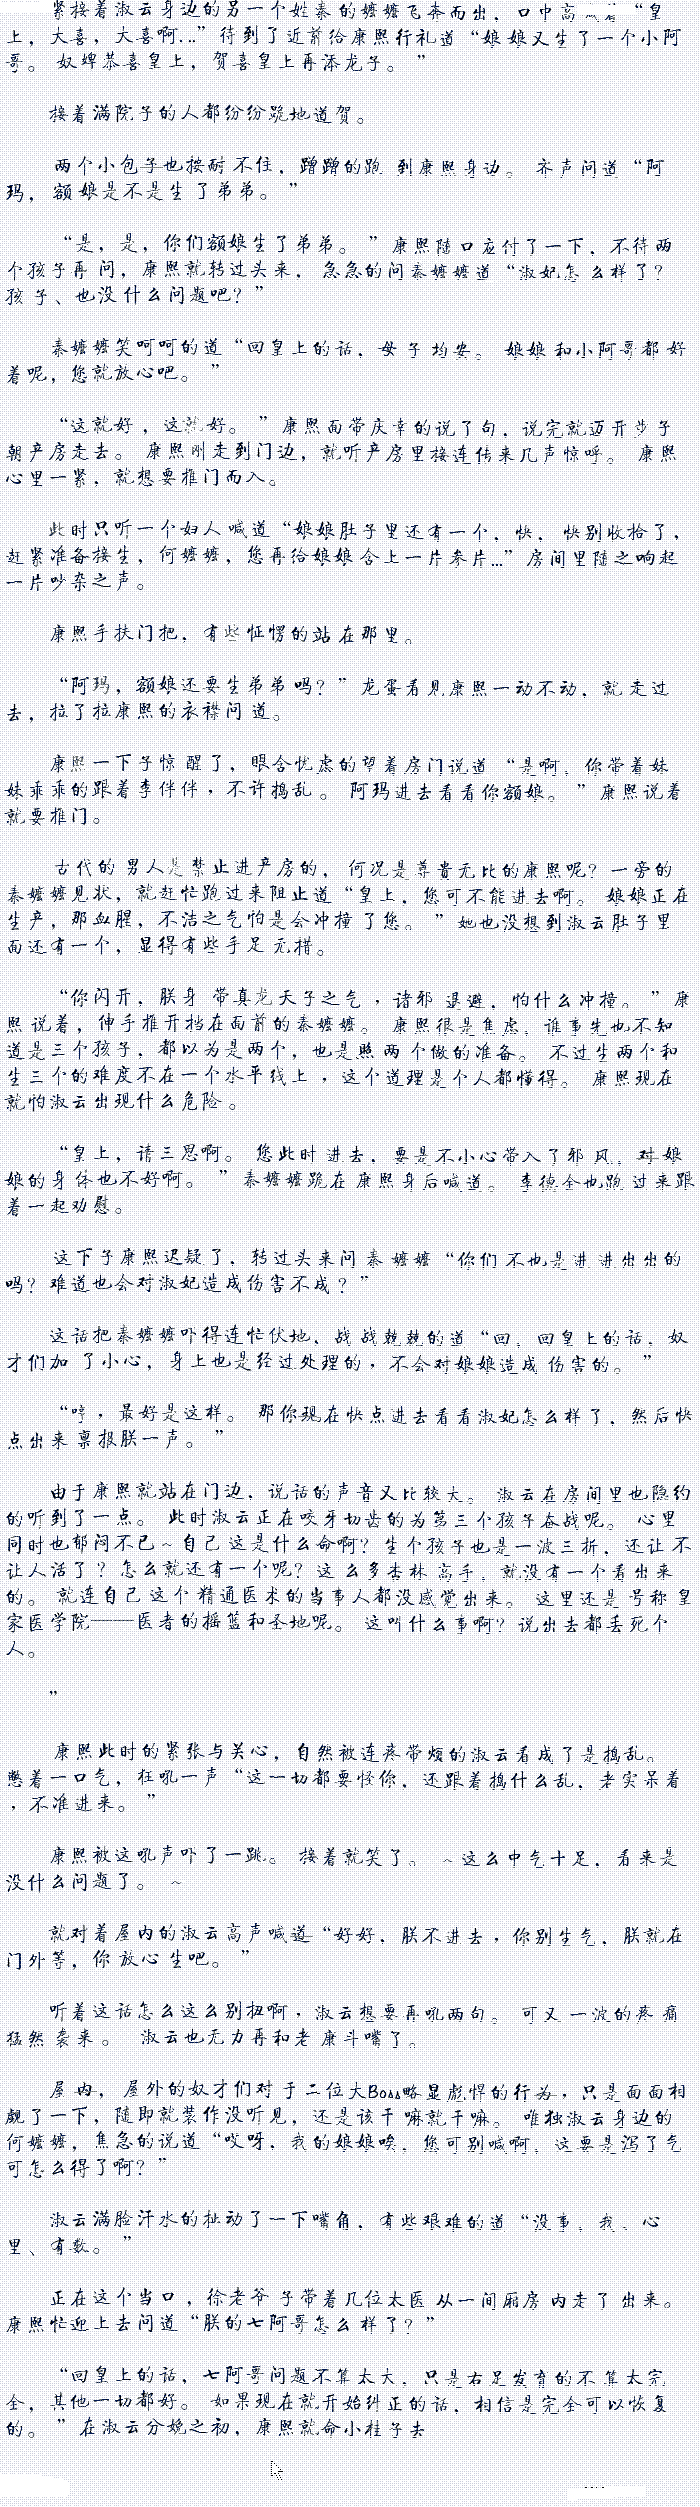 紧接着淑云身边的另一个姓秦的嬷嬷飞奔而出，口中高喊着“皇
上，大喜，大喜啊…”待到了近前给康熙行礼道“娘娘又生了一个小阿
哥。奴婢恭喜皇上，贺喜皇上再添龙子。”
接着满院子的人都纷纷跪地道贺。
两个小包子也按耐不住，蹭蹭的跑到康熙身边。齐声问道“阿
玛，额娘是不是生了弟弟。”
“是，是，你们额娘生了弟弟。”康熙随口应付了一下，不待两
个孩子再问，康熙就转过头来，急急的问秦嬷嬷道“淑妃怎么样了？
孩子、也没什么问题吧？”
秦嬷嬷笑呵呵的道“回皇上的话，母子均安。娘娘和小阿哥都好
着呢，您就放心吧。”
“这就好，这就好。”康熙面带庆幸的说了句，说完就迈开步子
朝产房走去。康熙刚走到门边，就听产房里接连传来几声惊呼。康熙
心里一紧，就想要推门而入。
此时只听一个妇人喊道“娘娘肚子里还有一个，快，快别收拾了，
赶紧准备接生，何嬷嬷，您再给娘娘含上一片参片…”房间里随之响起
一片吵杂之声。
康熙手扶门把，有些怔愣的站在那里。
“阿玛，额娘还要生弟弟吗？”龙蛋看见康熙一动不动，就走过
去，拉了拉康熙的衣襟问道。
康熙一下子惊醒了，眼含忧虑的望着房门说道“是啊，你带着妹
妹乖乖的跟着李伴伴，不许捣乱。阿玛进去看看你额娘。”康熙说着
就要推门。
古代的男人是禁止进产房的，何况是尊贵无比的康熙呢？一旁的
秦嬷嬷见状，就赶忙跑过来阻止道“皇上，您可不能进去啊。娘娘正在
生产，那血腥，不洁之气怕是会冲撞了您。”她也没想到淑云肚子里
面还有一个，显得有些手足无措。
“你闪开，朕身带真龙天子之气，诸邪退避，怕什么冲撞。”康
熙说着，伸手推开挡在面前的秦嬷嬷。康熙很是焦虑，谁事先也不知
道是三个孩子，都以为是两个，也是照两个做的准备。不过生两个和
生三个的难度不在一个水平线上，这个道理是个人都懂得。康熙现在
就怕淑云出现什么危险。
“皇上，请三思啊。您此时进去，要是不小心带入了邪风，对娘
娘的身体也不好啊。”秦嬷嬷跪在康熙身后喊道。李德全也跑过来跟
着一起劝慰。
这下子康熙迟疑了，转过头来问秦嬷嬷“你们不也是进进出出的
吗？难道也会对淑妃造成伤害不成？”
这话把秦嬷嬷吓得连忙伏地，战战兢兢的道“回，回皇上的话，奴
才们加了小心，身上也是经过处理的，不会对娘娘造成伤害的。”
“哼，最好是这样。那你现在快点进去看看淑妃怎么样了，然后快
点出来禀报朕一声。”
由于康熙就站在门边，说话的声音又比较大。淑云在房间里也隐约
的听到了一点。此时淑云正在咬牙切齿的为第三个孩子奋战呢。心里
同时也郁闷不已~自己这是什么命啊？生个孩子也是一波三折，还让不
让人活了？怎么就还有一个呢？这么多杏林高手，就没有一个看出来
的。就连自己这个精通医术的当事人都没感觉出来。这里还是号称皇
家医学院——医者的摇篮和圣地呢。这叫什么事啊？说出去都丢死个
人。
”
康熙此时的紧张与关心，自然被连疼带烦的淑云看成了是捣乱。
憋着一口气，狂吼一声“这一切都要怪你，还跟着捣什么乱，老实呆着
，不准进来。”
康熙被这吼声吓了一跳。接着就笑了。~这么中气十足，看来是
没什么问题了。~
就对着屋内的淑云高声喊道“好好，朕不进去，你别生气，朕就在
门外等，你放心生吧。”
听着这话怎么这么别扭啊，淑云想要再吼两句。可又一波的疼痛
猛然袭来。淑云也无力再和老康斗嘴了。
屋内，屋外的奴才们对于二位大Boss略显彪悍的行为，只是面面相
觑了一下，随即就装作没听见，还是该干嘛就干嘛。唯独淑云身边的
何嬷嬷，焦急的说道“哎呀，我的娘娘唉，您可别喊啊，这要是泻了气
可怎么得了啊？”
淑云满脸汗水的扯动了一下嘴角，有些艰难的道“没事，我，心
里、有数。”
正在这个当口，徐老爷子带着几位太医从一间厢房内走了出来。
康熙忙迎上去问道“朕的七阿哥怎么样了？”
“回皇上的话，七阿哥问题不算太大，只是右足发育的不算太完
全，其他一切都好。如果现在就开始纠正的话，相信是完全可以恢复
的。”在淑云分娩之初，康熙就命小桂子去